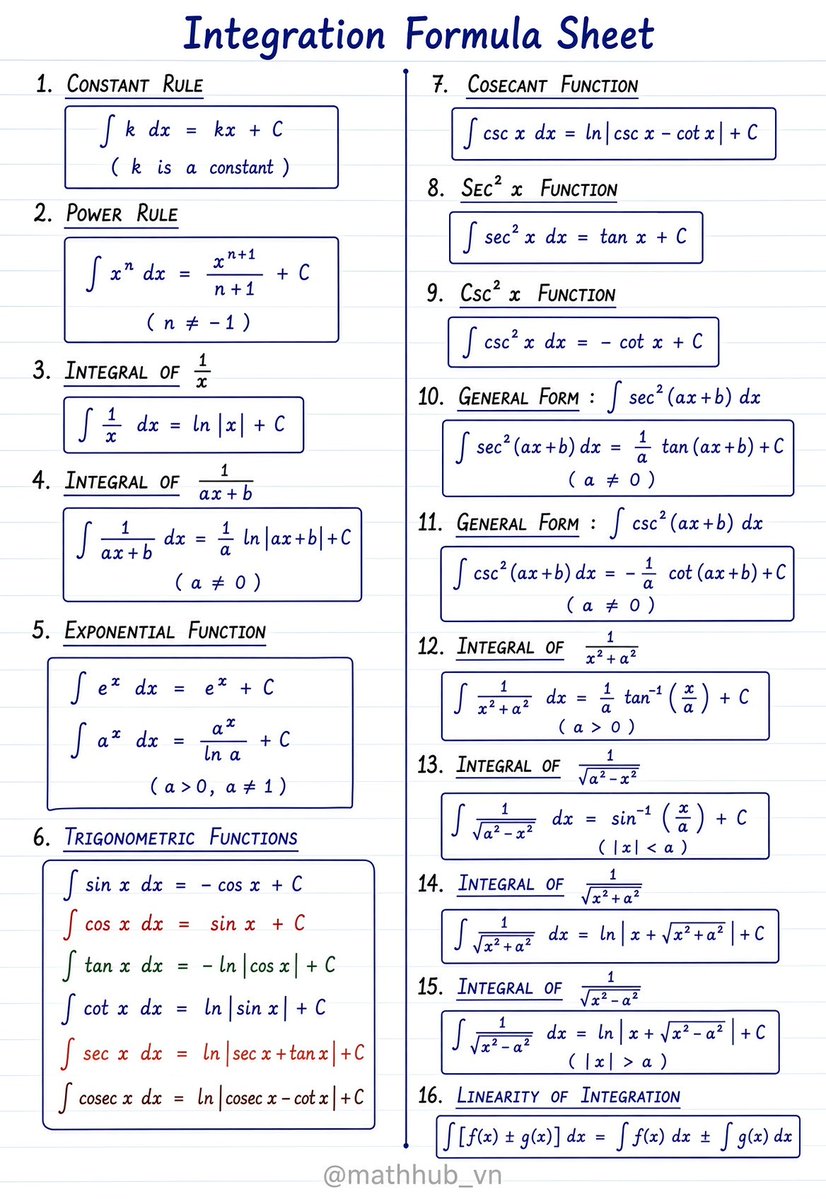 Integration Formula Sheet
1. CONSTANT RULE
∫ k dx = kx + C
( k is a constant )
2. POWER RULE
∫ xⁿ dx = xⁿ⁺¹/(n+1) + C
( n ≠ -1 )
3. INTEGRAL OF 1/x
∫ 1/x dx = ln |x| + C
4. INTEGRAL OF 1/(ax+b)
∫ 1/(ax+b) dx = 1/a ln|ax+b|+C
( a ≠ 0 )
5. EXPONENTIAL FUNCTION
∫ eˣ dx = eˣ + C
∫ aˣ dx = aˣ/ln a + C
( a>0, a ≠ 1 )
6. TRIGONOMETRIC FUNCTIONS
∫ sin x dx = - cos x + C
∫ cos x dx = sin x + C
∫ tan x dx = - ln |cos x| + C
∫ cot x dx = ln |sin x| + C
∫ sec x dx = ln |sec x + tan x| + C
∫ cosec x dx = ln |cosec x - cot x| + C
7. COSECANT FUNCTION
∫ csc x dx = ln|csc x - cot x| + C
8. SEC² x FUNCTION
∫ sec² x dx = tan x + C
9. CSC² x FUNCTION
∫ csc² x dx = - cot x + C
10. GENERAL FORM : ∫ sec² (ax+b) dx
∫ sec² (ax+b) dx = 1/a tan (ax+b) + C
( a ≠ 0 )
11. GENERAL FORM : ∫ csc² (ax+b) dx
∫ csc² (ax+b) dx = - 1/a cot (ax+b) + C
( a ≠ 0 )
12. INTEGRAL OF 1/(x²+a²)
∫ 1/(x²+a²) dx = 1/a tan⁻¹ (x/a) + C
( a > 0 )
13. INTEGRAL OF 1/√(a²-x²)
∫ 1/√(a²-x²) dx = sin⁻¹ (x/a) + C
( |x| < a )
14. INTEGRAL OF 1/√(x²+a²)
∫ 1/√(x²+a²) dx = ln | x + √(x²+a²) | + C
15. INTEGRAL OF 1/√(x²-a²)
∫ 1/√(x²-a²) dx = ln | x + √(x²-a²) | + C
( |x| > a )
16. LINEARITY OF INTEGRATION
∫ [f(x) ± g(x)] dx = ∫ f(x) dx ± ∫ g(x) dx
@mathhub_vn